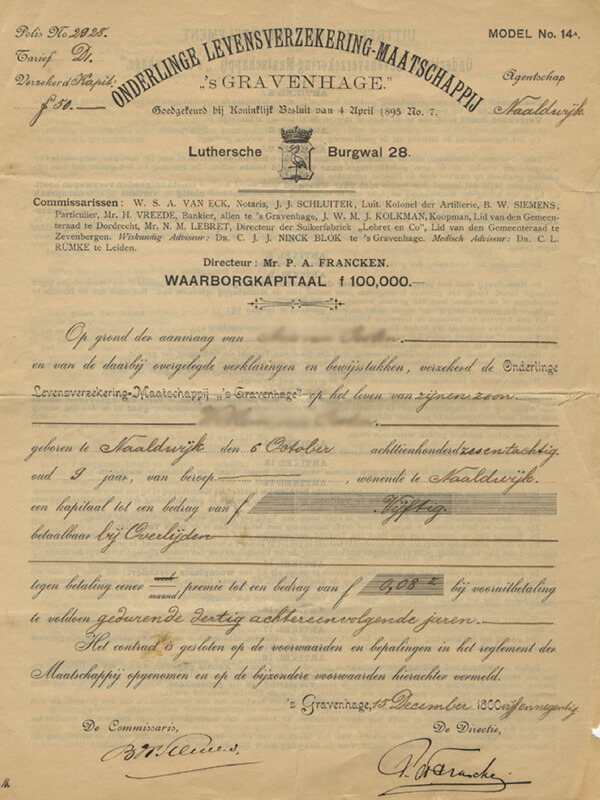 Polis No 2928.
MODEL No. 14A.
Tarief D1.
ONDERLINGE LEVENSVERZEKERING-MAATSCHAPPIJ
Verzekerd Kapit:
„'s GRAVENHAGE."
Agentschap
f 50.—
Goedgekeurd bij Koninklijk Besluit van 4 April 1895 No. 7.
Naaldwijk
Luthersche Burgwal 28.
Commissarissen: W. S. A. VAN ECK, Notaris, J. J. SCHLUITER, Luit. Kolonel der Artillerie, B. W. SIEMENS,
Particulier, Mr. H. VREEDE, Bankier, allen te 's Gravenhage, J. W. M. J. KOLKMAN, Koopman, Lid van den Gemeen-
teraad te Dordrecht, Mr. N. M. LEBRET, Directeur der Suikerfabriek „Lebret en Co", Lid van den Gemeenteraad te
Zevenbergen. Wiskundig Adviseur: DR. C. J. J. NINCK BLOK te 's Gravenhage. Medisch Adviseur: DR. C. L.
RÜMKE te Leiden.
Directeur: Mr. P. A. FRANCKEN.
WAARBORGKAPITAAL f 100,000.—
Op grond der aanvraag van
en van de daarbij overgelegde verklaringen en bewijsstukken, verzekerd de Onderlinge
Levensverzekering-Maatschappij „'s Gravenhage" op het leven van zijnen zoon
geboren te Naaldwijk den 6 October achttienhonderd zesentachtig
oud 9 jaar, van beroep — , wonende te Naaldwijk.
een kapitaal tot een bedrag van f Vijftig.
betaalbaar bij Overlijden
tegen betaling eener week maand premie tot een bedrag van f 0,08 bij vooruitbetaling
te voldoen gedurende dertig achtereenvolgende jaren.
Het contract is gesloten op de voorwaarden en bepalingen in het reglement der
Maatschappij opgenomen en op de bijzondere voorwaarden hierachter vermeld.
's Gravenhage, 15 December 1800 vijfennegentig
De Commissaris, De Directie,